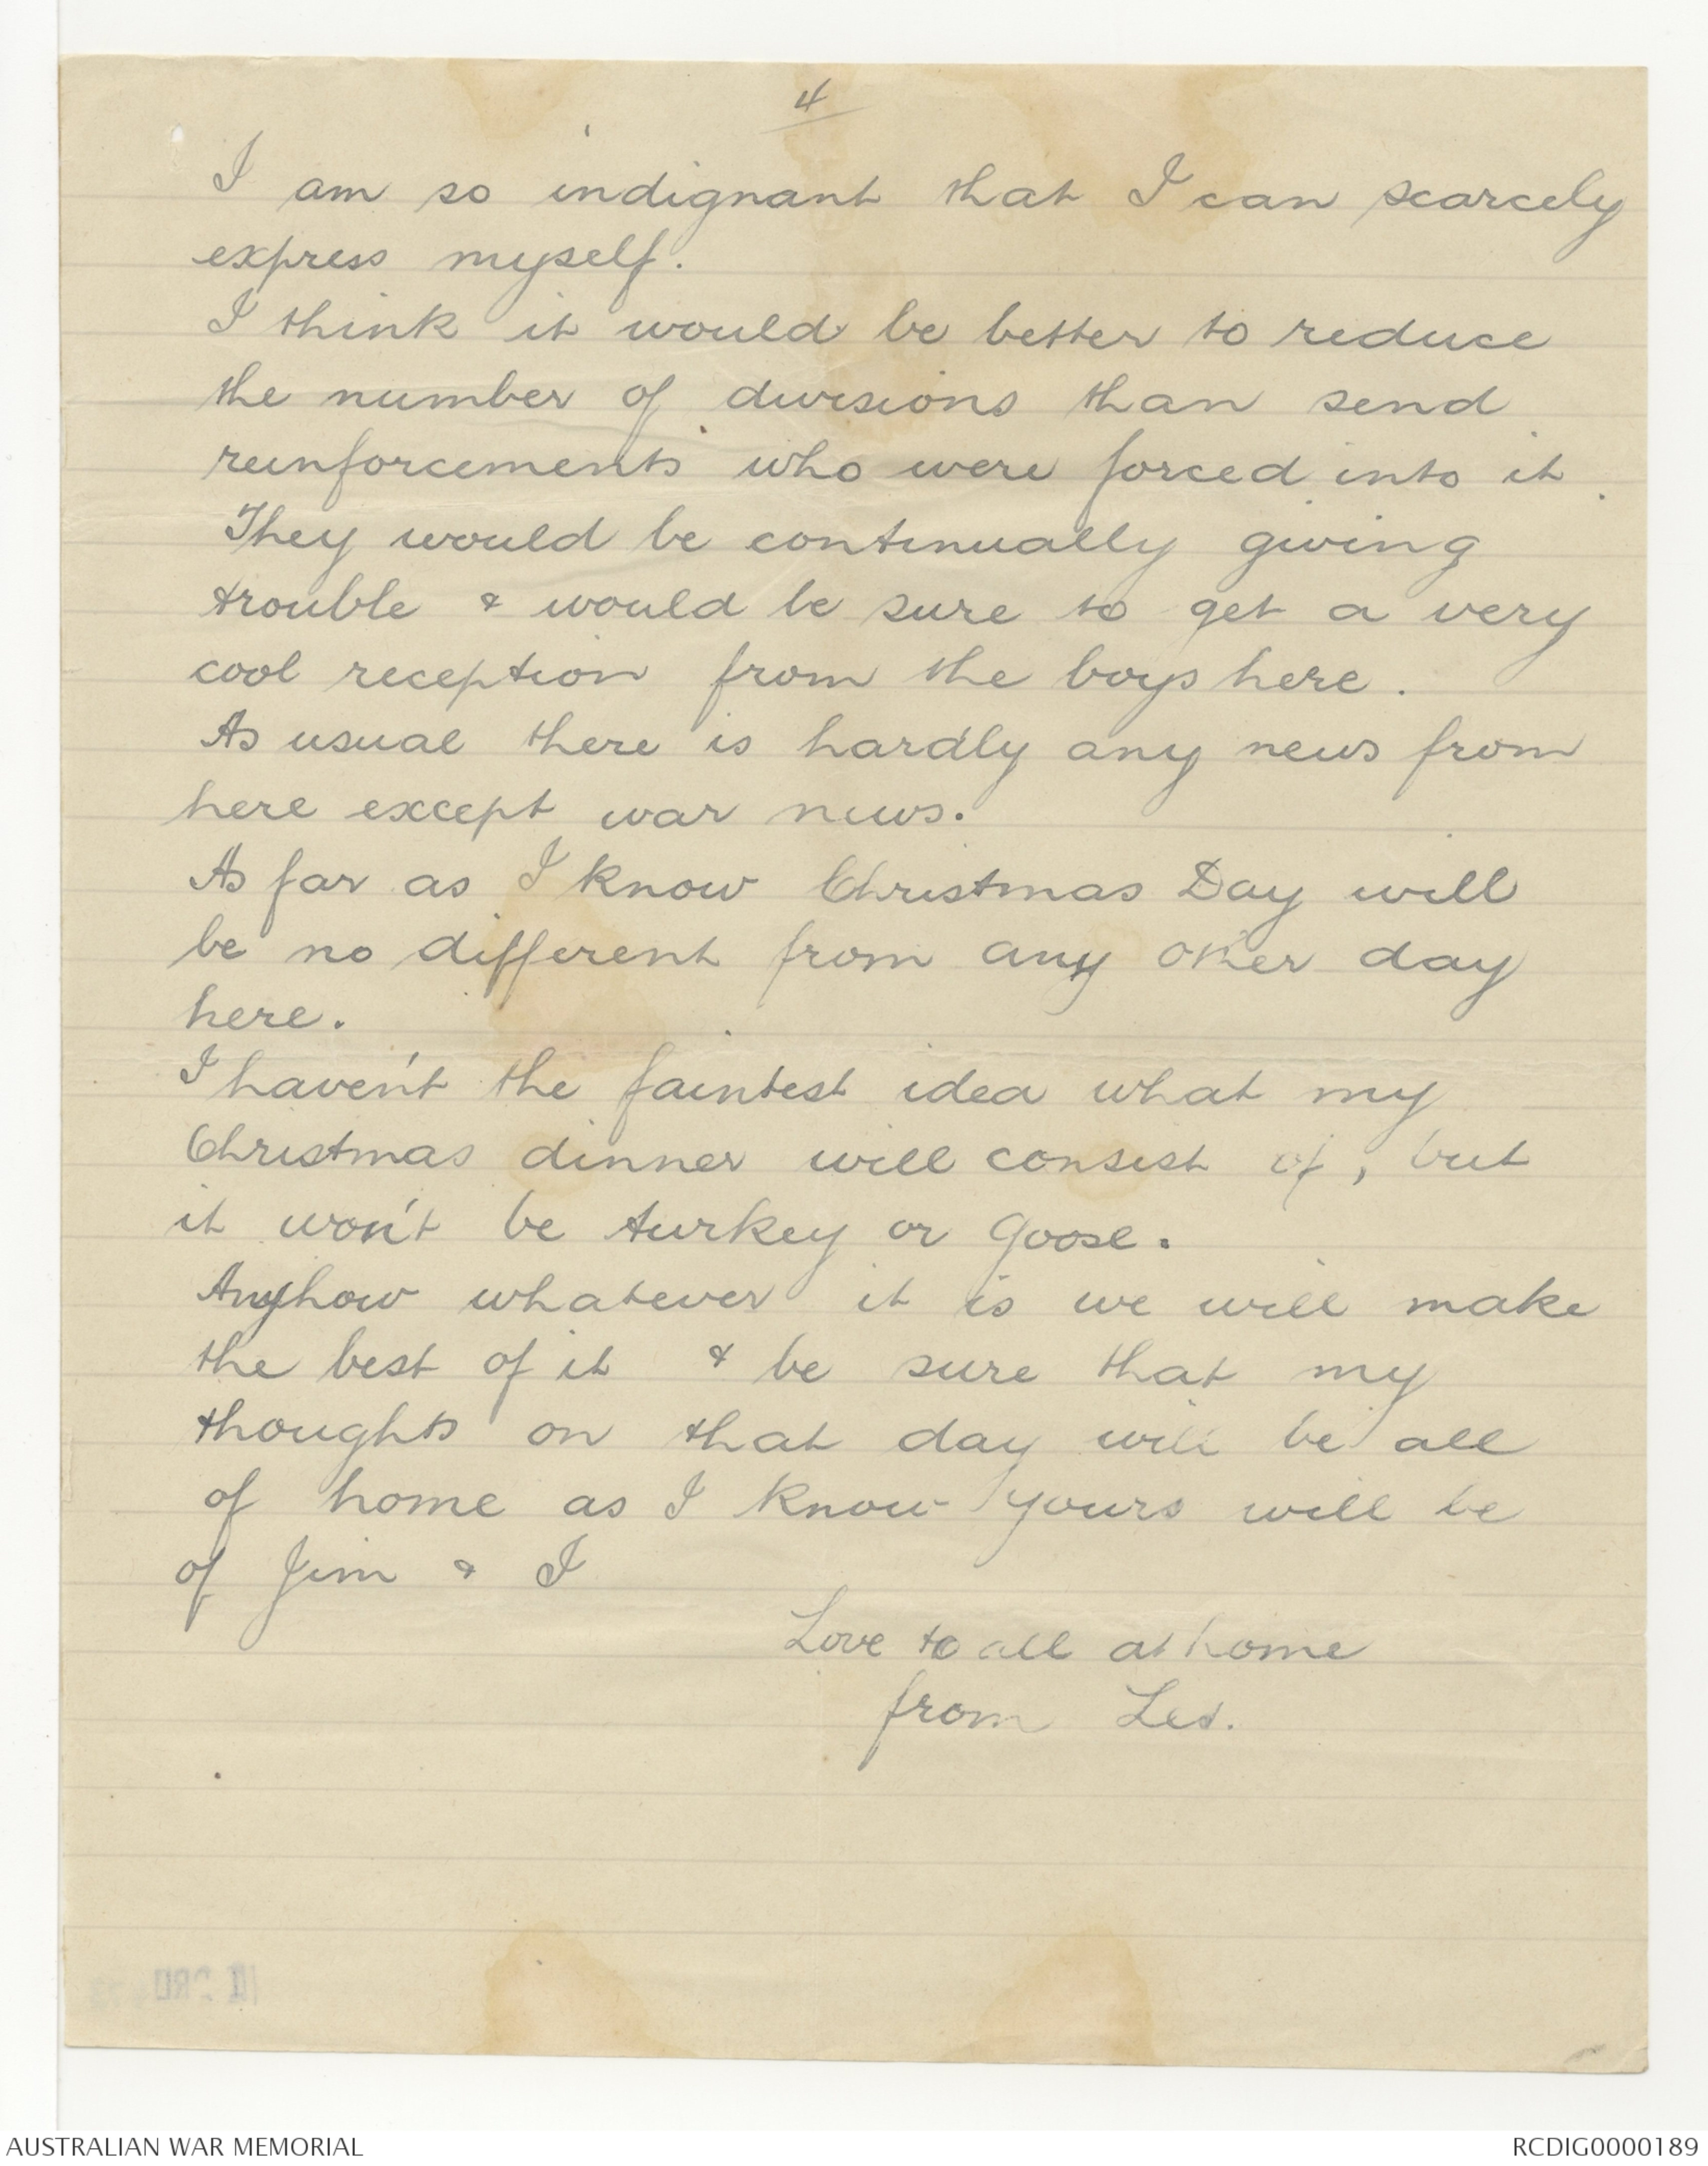 4
I am so indignant that I can scarcely
express myself.
I think it would be better to reduce
the number of divisions than send
reinforcements who were forced into it.
They would be continually giving
trouble & would be sure to get a very
cool reception from the boys here.
As usual there is hardly any news from
here except war news.
As far as I know Christmas Day will
be no different from any other day
here.
I haven't the faintest idea what my
Christmas dinner will consist of, but
it won't be turkey or goose.
Anyhow whatever it is we will make
the best of it & be sure that my
thoughts on that day will be all
of home as I know yours will be
of Jim & I
Love to all at home
from Les.
AUSTRALIAN WAR MEMORIAL
RCDIG0000189